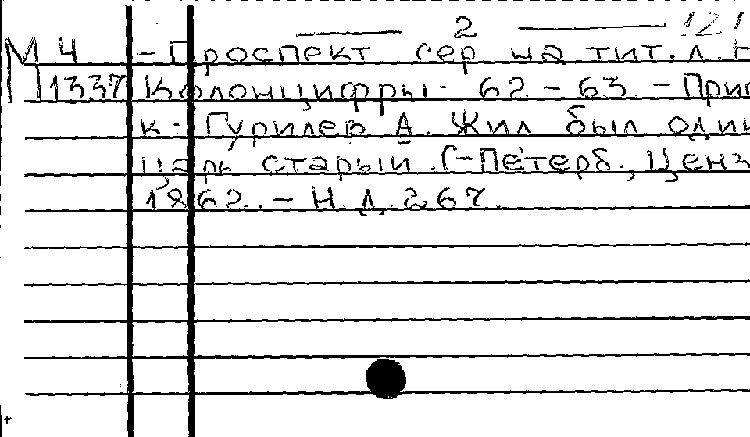 — 2 — 121
М 4 - Проспект сер на тит. л.
1337 Колонцифры: 62 - 63 - При
к: Гурилев А. Жил был один
царь старый. С-Петерб., Ценз
1862. - Н. Д. 267.